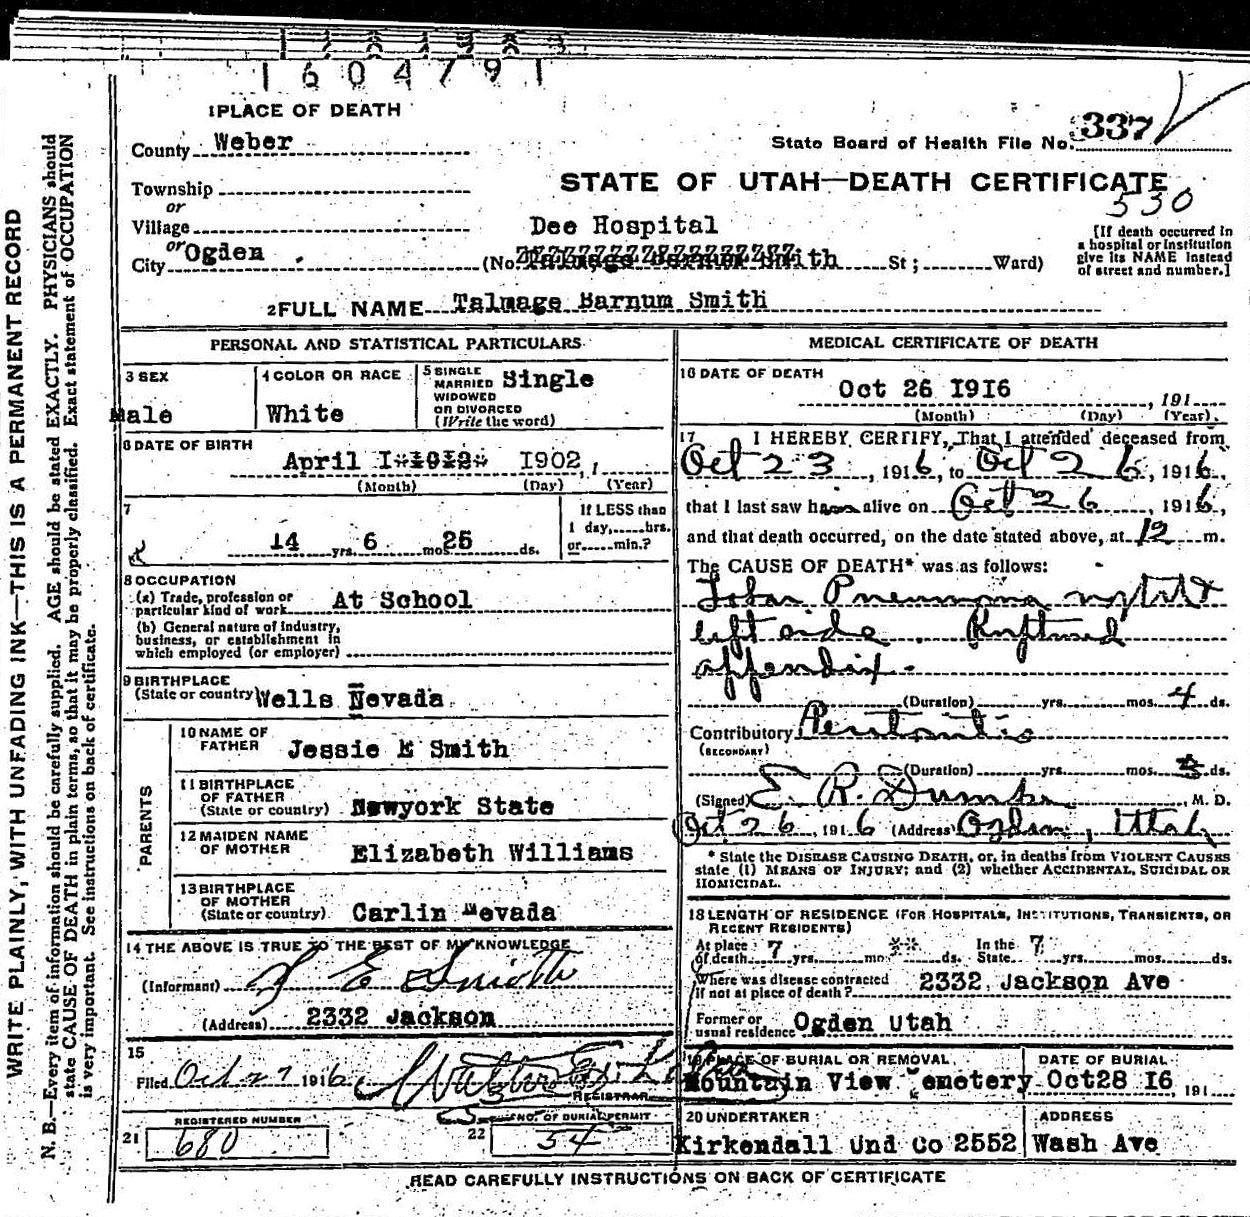 1604791
1 PLACE OF DEATH
County Weber
State Board of Health File No. 337
Township
STATE OF UTAH—DEATH CERTIFICATE
530
or
Village
Dee Hospital
or Ogden
City
(No. Talmage Barnum Smith St; Ward)
[If death occurred in
a hospital or institution
give its NAME instead
of street and number.]
2 FULL NAME Talmage Barnum Smith
PERSONAL AND STATISTICAL PARTICULARS
3 SEX
Male
4 COLOR OR RACE
White
5 SINGLE
MARRIED
WIDOWED
OR DIVORCED
(Write the word)
Single
6 DATE OF BIRTH
April I 1902
(Month) (Day) (Year)
7
14 yrs. 6 mos 25 ds.
If LESS than
1 day, hrs.
or min.?
8 OCCUPATION
(a) Trade, profession or
particular kind of work At School
(b) General nature of industry,
business, or establishment in
which employed (or employer)
9 BIRTHPLACE
(State or country) Wells Nevada
PARENTS
10 NAME OF
FATHER Jessie E Smith
11 BIRTHPLACE
OF FATHER
(State or country) Newyork State
12 MAIDEN NAME
OF MOTHER Elizabeth Williams
13 BIRTHPLACE
OF MOTHER
(State or country) Carlin Nevada
14 THE ABOVE IS TRUE TO THE BEST OF MY KNOWLEDGE
(Informant) J E Smith
(Address) 2332 Jackson
15
Filed Oct 27 1916
REGISTRAR
REGISTERED NUMBER
21 680
NO. OF BURIAL PERMIT
22 54
MEDICAL CERTIFICATE OF DEATH
16 DATE OF DEATH
Oct 26 I9I6 , 191
(Month) (Day) (Year)
17 I HEREBY CERTIFY, That I attended deceased from
Oct 23, 1916, to Oct 26, 1916
that I last saw him alive on Oct 26, 1916,
and that death occurred, on the date stated above, at 12 m.
The CAUSE OF DEATH* was as follows:
Lobar Pneumonia
left side. Ruptured
appendix.
(Duration) yrs. mos. 4 ds.
Contributory Peritonitis
(SECONDARY)
(Duration) yrs. mos. 3 ds.
(Signed) E. R. Dumke, M. D.
Oct 26, 1916 (Address) Ogden, Utah
* State the DISEASE CAUSING DEATH, or, in deaths from VIOLENT CAUSES
state (1) MEANS OF INJURY; and (2) whether ACCIDENTAL, SUICIDAL OR
HOMICIDAL.
18 LENGTH OF RESIDENCE (FOR HOSPITALS, INSTITUTIONS, TRANSIENTS, OR
RECENT RESIDENTS)
At place
of death 7 yrs. mo ds. In the
State 7 yrs. mos. ds.
Where was disease contracted
if not at place of death? 2332 Jackson Ave
Former or
usual residence Ogden Utah
19 PLACE OF BURIAL OR REMOVAL
Mountain View Cemetery
DATE OF BURIAL
Oct28 I6 , 191
20 UNDERTAKER
Kirkendall Und Co 2552
ADDRESS
Wash Ave
READ CAREFULLY INSTRUCTIONS ON BACK OF CERTIFICATE
WRITE PLAINLY, WITH UNFADING INK—THIS IS A PERMANENT RECORD
N. B.—Every item of information should be carefully supplied. AGE should be stated EXACTLY. PHYSICIANS should
state CAUSE OF DEATH in plain terms, so that it may be properly classified. Exact statement of OCCUPATION
is very important. See instructions on back of certificate.